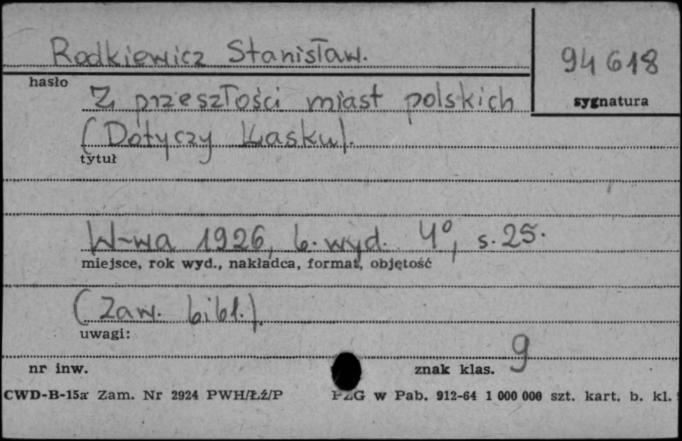 Rodkiewicz Stanisław.
94618
hasło
sygnatura
Z przeszłości miast polskich
(Dotyczy Łasku).
tytuł
W-wa 1926, b. wyd. 4°, s. 25.
miejsce, rok wyd., nakładca, format, objętość
(Zaw. bibl.).
uwagi:
nr inw.
znak klas. 9
CWD-B-15a Zam. Nr 2924 PWH/Łź/P PZG w Pab. 912-64 1 000 000 szt. kart. b. kl.